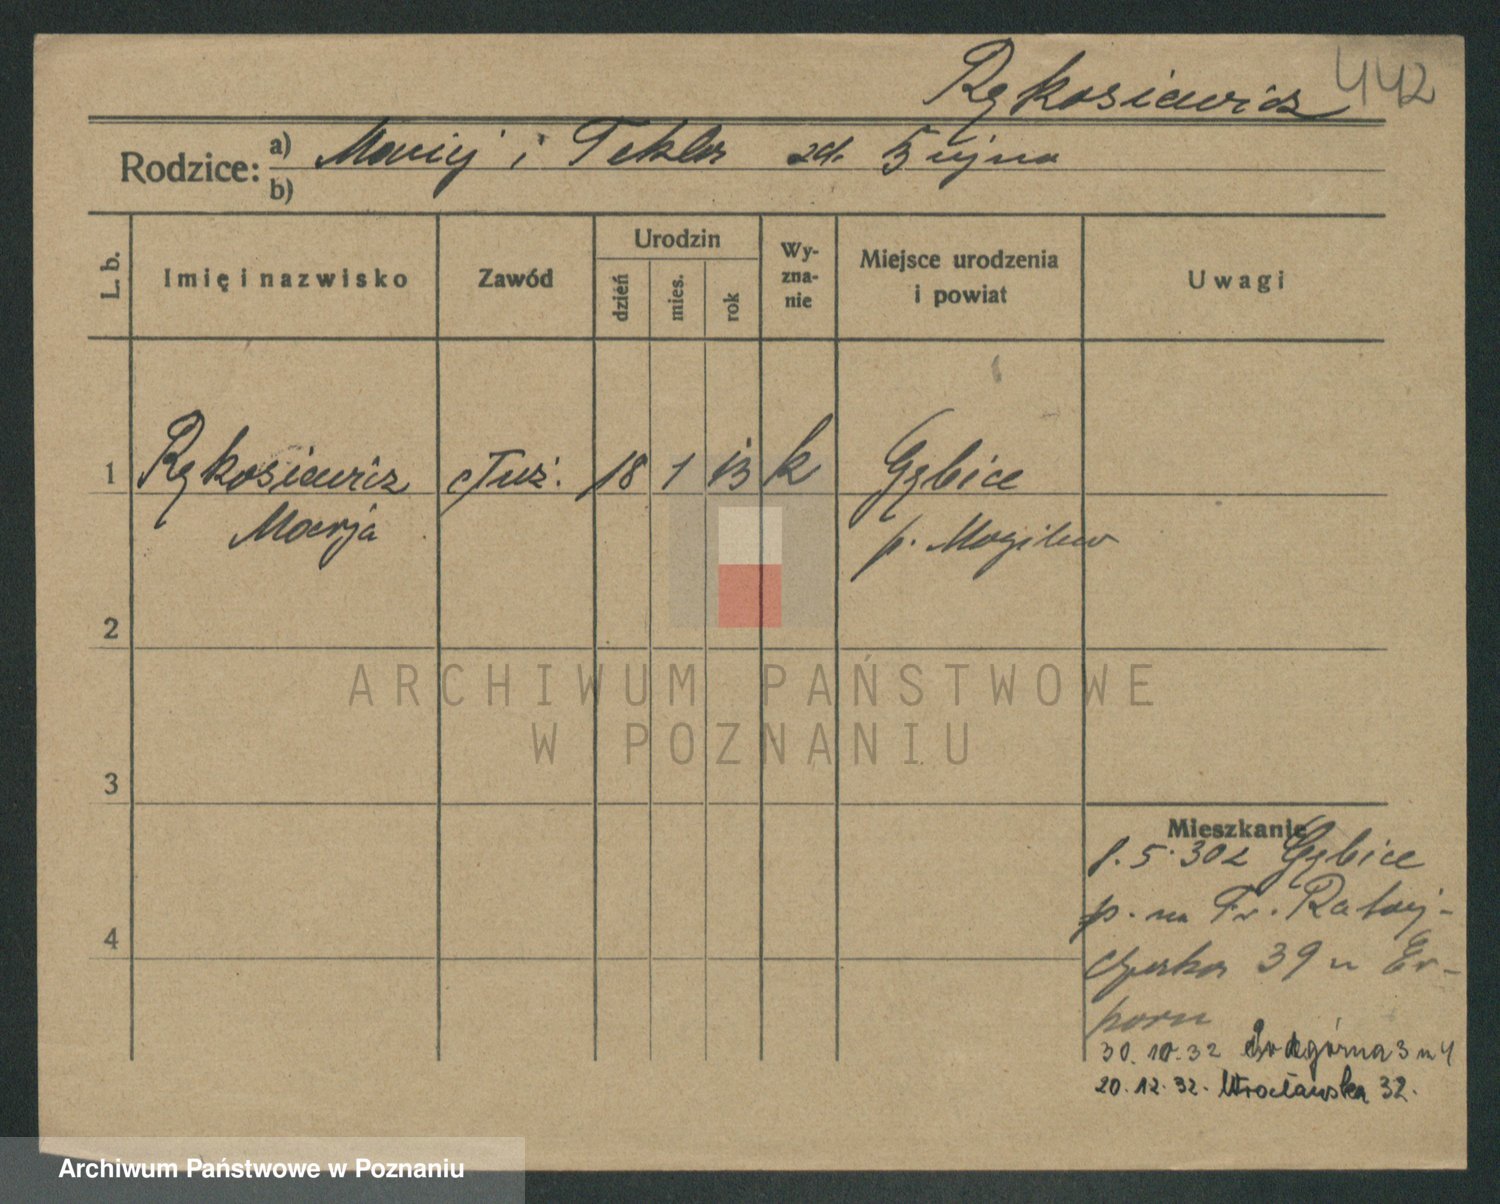 Rękosiewicz 442
Rodzice: a) Maciej i Tekla zd. Bujna
b)
L. b. Imię i nazwisko Zawód Urodzin dzień mies. rok Wy-zna-nie Miejsce urodzenia i powiat Uwagi
1 Rękosiewicz służ. 18 1 13 k Gębice
Marja p. Mogilno
2
3
4
Mieszkanie
1.5.30 z Gębice
p. na Fr. Rataj-
czaka 39 u
30.10.32 Podgórna 3 u
20.12.32. Wrocławska 32.
ARCHIWUM PAŃSTWOWE
W POZNANIU
Archiwum Państwowe w Poznaniu